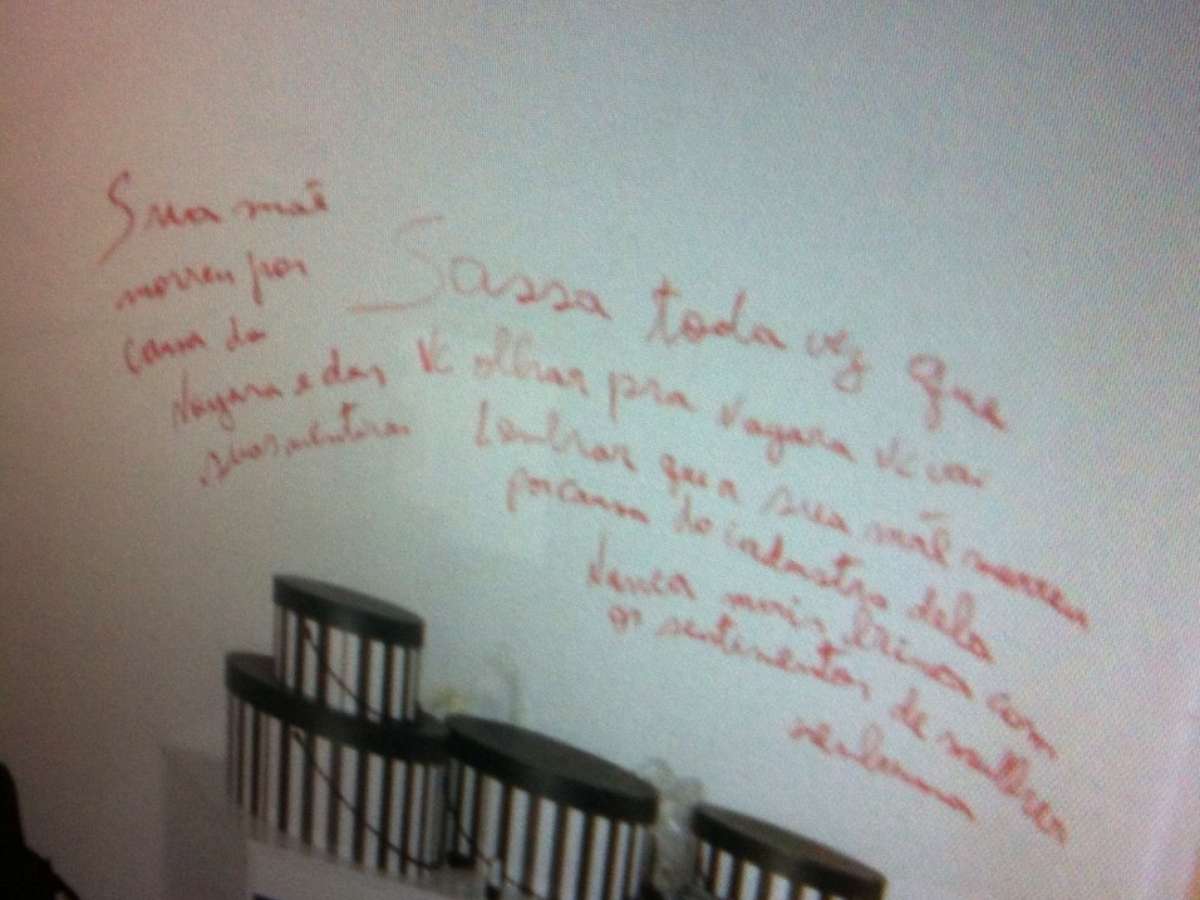 Sua mãe
morreu por
causa da
Nayara e das
suas mentiras
Sassa toda vez que
vc olhar pra Nayara vc vai
lembrar que a sua mãe morreu
por causa do cadastro dela
Nunca mais brinca com
os sentimentos de mulher
nenhuma